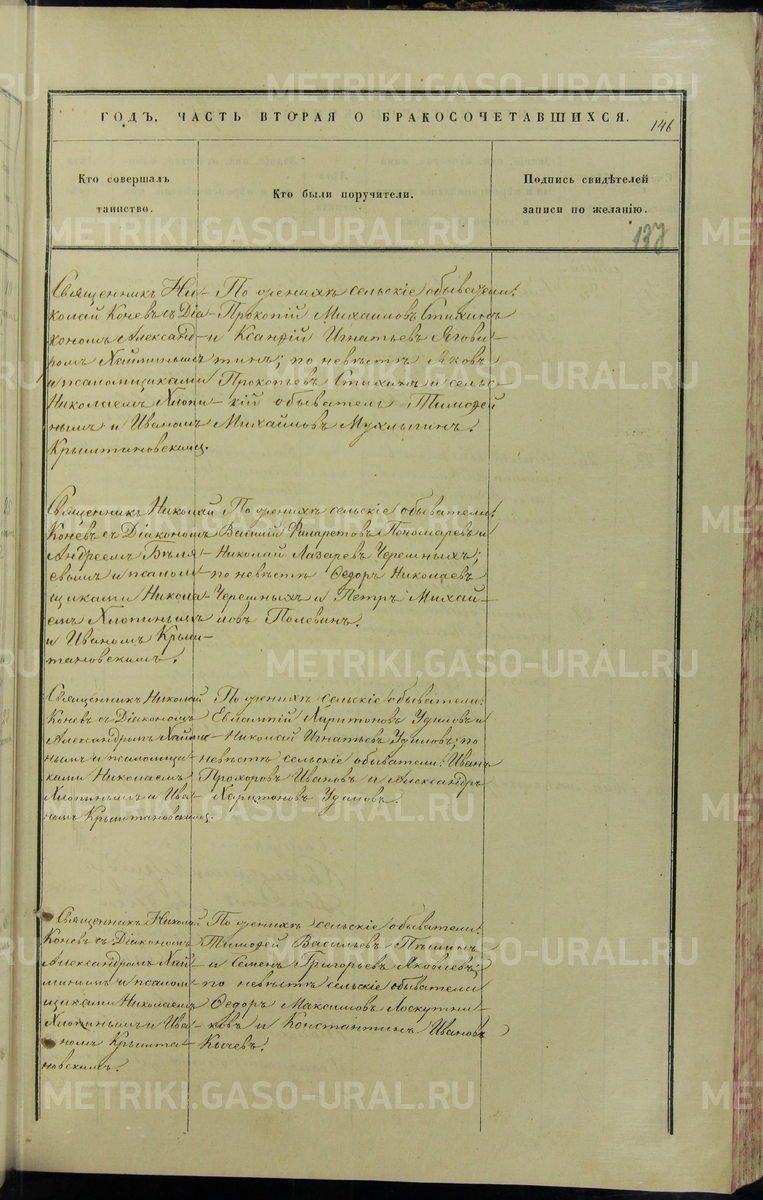 METRIKI.GASO-URAL.RU
ГОДЪ, ЧАСТЬ ВТОРАЯ О БРАКОСОЧЕТАВШИХСЯ.
146
Кто совершалъ
таинство.
Кто были поручители.
Подпись свидѣтелей
записи по желанію.
137
Священникъ Ни-
колай Коневъ съ Діа-
кономъ Александ-
ромъ Хайминымъ
и псаломщиками
Николаемъ Хлопи-
нымъ и Иваномъ
Крыштановскимъ.
По женихѣ сельскіе обыватели:
Прокопій Михаиловъ Стихинъ
и Ксанфій Игнатьевъ Ягови-
тинъ; по невѣстѣ Яковъ
Прокопьевъ Стихинъ и сельс-
кій обыватель Тимофей
Михаиловъ Мухлынинъ.
Священникъ Николай
Коневъ съ Діакономъ
Андреемъ Бѣля-
евымъ и псалом-
щиками Никола-
емъ Хлопинымъ
и Иваномъ Крыш-
тановскимъ.
По женихѣ сельскіе обыватели:
Василій Филаретовъ Пономаревъ и
Николай Лазаревъ Черемныхъ;
по невѣстѣ Федоръ Николаевъ
Черемныхъ и Петръ Михай-
ловъ Полевинъ.
Священникъ Николай
Коневъ съ Діакономъ
Александромъ Хайми-
нымъ и псаломщи-
ками Николаемъ
Хлопинымъ и Ива-
номъ Крыштановскимъ.
По женихѣ сельскіе обыватели:
Евлампій Харитоновъ Удиловъ и
Николай Игнатьевъ Удиловъ; по
невѣстѣ сельскіе обыватели: Иванъ
Прохоровъ Ивановъ и Александръ
Харитоновъ Удиловъ.
Священникъ Николай
Коневъ съ Діакономъ
Александромъ Хай-
минымъ и псалом-
щиками Николаемъ
Хлопинымъ и Ива-
номъ Крышта-
новскимъ.
По женихѣ сельскіе обыватели:
Тимофей Васильевъ
и Семенъ Григорьевъ Яковлевъ;
по невѣстѣ сельскіе обыватели
Федоръ Максимовъ Лоскутни-
ковъ и Константинъ Ивановъ
Кычевъ.